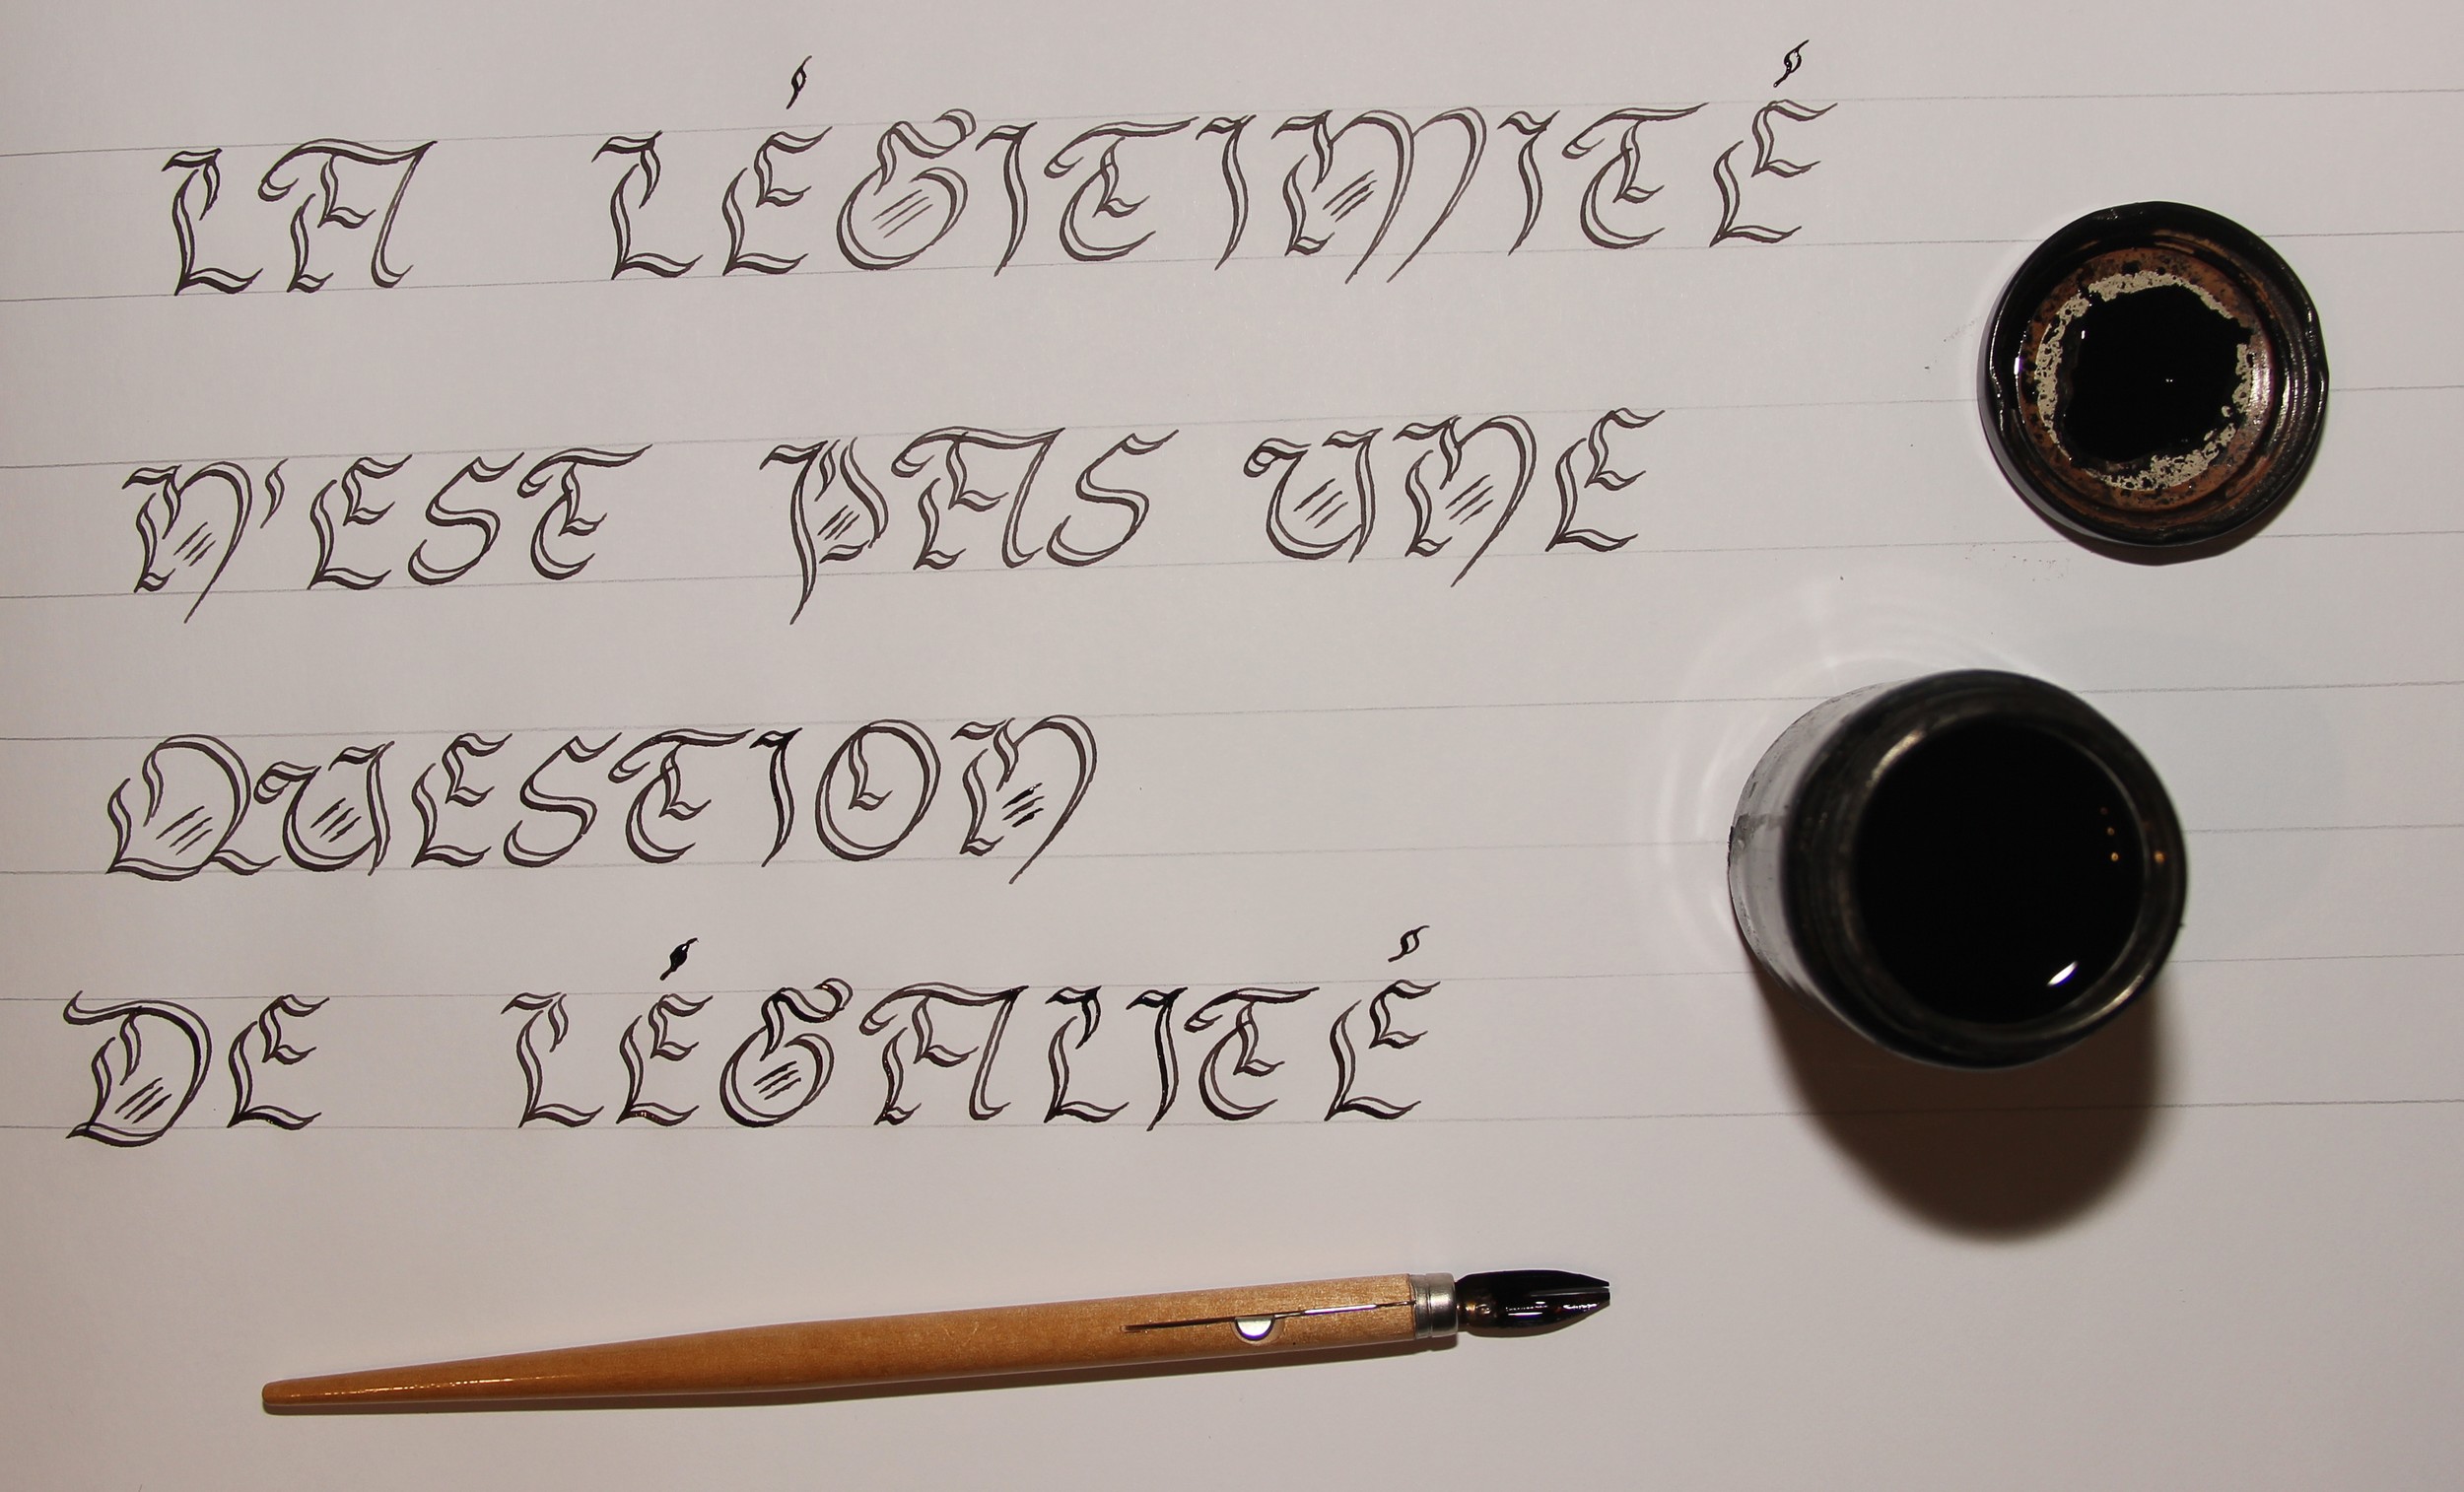 LA LÉGITIMITÉ
N'EST PAS UNE
QUESTION
DE LÉGALITÉ